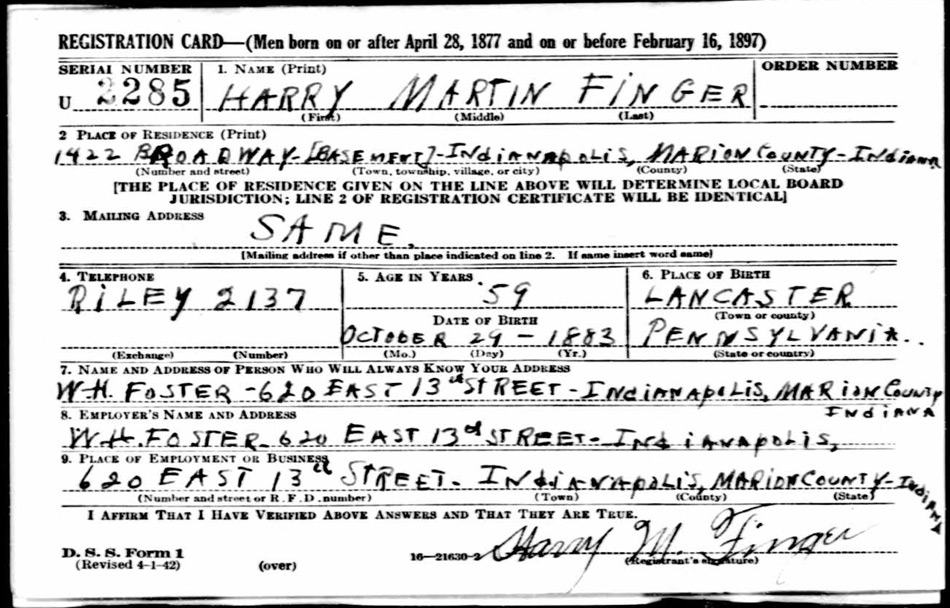 REGISTRATION CARD—(Men born on or after April 28, 1877 and on or before February 16, 1897)
SERIAL NUMBER 1. NAME (Print) ORDER NUMBER
U 2285 HARRY MARTIN FINGER
(First) (Middle) (Last)
2 PLACE OF RESIDENCE (Print)
1422 BROADWAY-[BASEMENT]-INDIANAPOLIS, MARION COUNTY-INDIANA
(Number and street) (Town, township, village, or city) (County) (State)
[THE PLACE OF RESIDENCE GIVEN ON THE LINE ABOVE WILL DETERMINE LOCAL BOARD
JURISDICTION; LINE 2 OF REGISTRATION CERTIFICATE WILL BE IDENTICAL]
3. MAILING ADDRESS
SAME.
[Mailing address if other than place indicated on line 2. If same insert word same]
4. TELEPHONE 5. AGE IN YEARS 6. PLACE OF BIRTH
RILEY 2137 59 LANCASTER
DATE OF BIRTH (Town or county)
OCTOBER 29 - 1883 PENNSYLVANIA.
(Exchange) (Number) (Mo.) (Day) (Yr.) (State or country)
7. NAME AND ADDRESS OF PERSON WHO WILL ALWAYS KNOW YOUR ADDRESS
W.H. FOSTER - 620 EAST 13th STREET - INDIANAPOLIS, MARION COUNTY
8. EMPLOYER'S NAME AND ADDRESS INDIANA
W.H. FOSTER. 620 EAST 13d STREET - INDIANAPOLIS,
9. PLACE OF EMPLOYMENT OR BUSINESS
620 EAST 13th STREET. INDIANAPOLIS, MARION COUNTY-INDIANA
(Number and street or R. F. D. number) (Town) (County) (State)
I AFFIRM THAT I HAVE VERIFIED ABOVE ANSWERS AND THAT THEY ARE TRUE.
D. S. S. Form 1 16—21630-2 Harry M. Finger
(Revised 4-1-42) (over) (Registrant's signature)